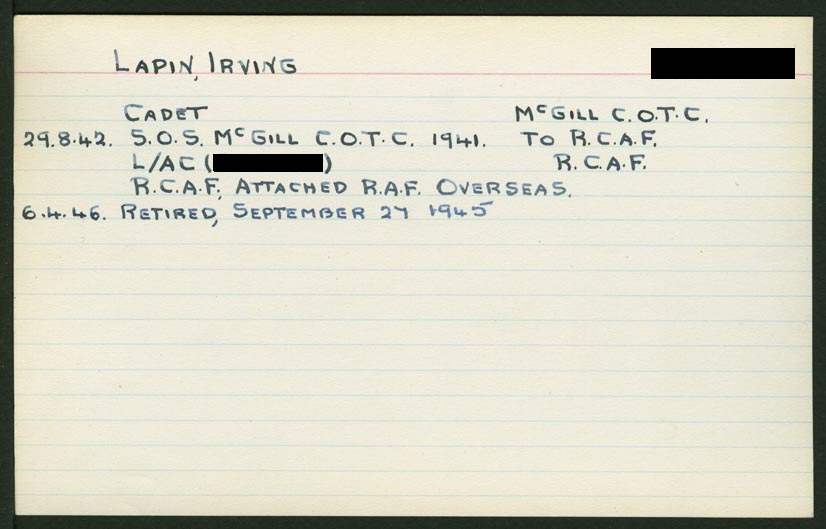 LAPIN, IRVING
CADET McGILL C.O.T.C.
29.8.42. S.O.S. McGILL C.O.T.C. 1941. TO R.C.A.F.
L/AC ( ) R.C.A.F.
R.C.A.F., ATTACHED R.A.F. OVERSEAS.
6.4.46. RETIRED, SEPTEMBER 27 1945